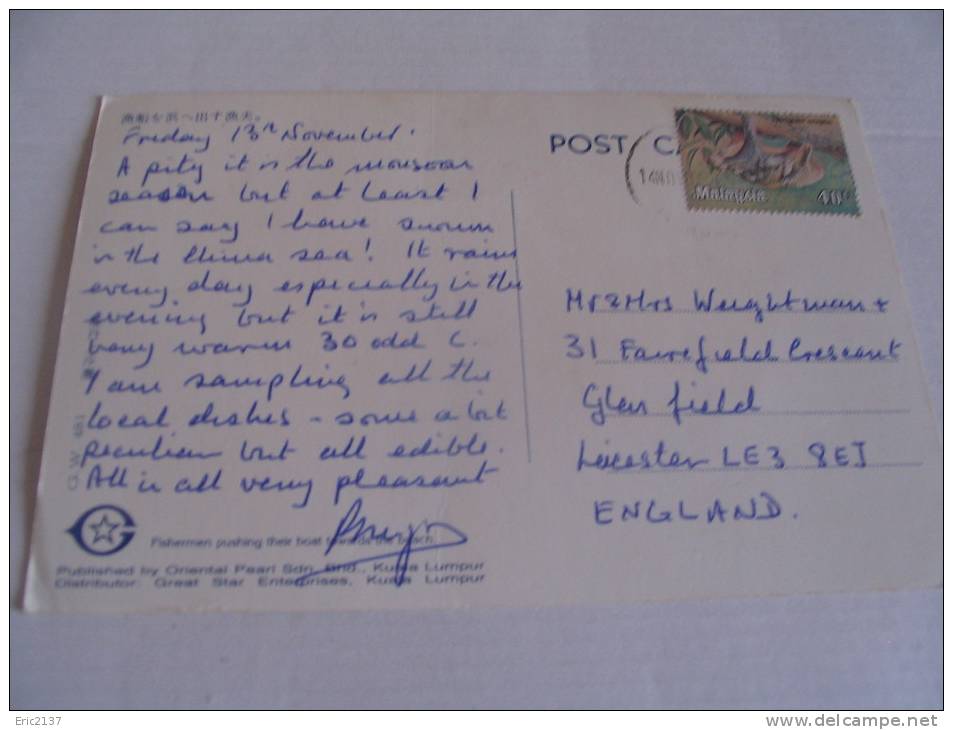 漁船を浜へ出す漁夫。
Friday 13th November.
A pity it is the monsoon
season but at least I
can say I have swum
in the China sea! It rains
every day especially in the
evening but it is still
very warm 30 odd C.
I am sampling all the
local dishes - some a bit
peculiar but all edible.
All in all very pleasant
G.W. 481
Fishermen pushing their boat towards the beach.
Published by Oriental Pearl Sdn. Bhd., Kuala Lumpur
Distributor: Great Star Enterprises, Kuala Lumpur
POST CA
14 NO
Malaysia 40c
Mr & Mrs Weightman +
31 Fairefield Crescent
Glenfield
Leicester LE3 8EJ
ENGLAND.
Eric2137
www.delcampe.net